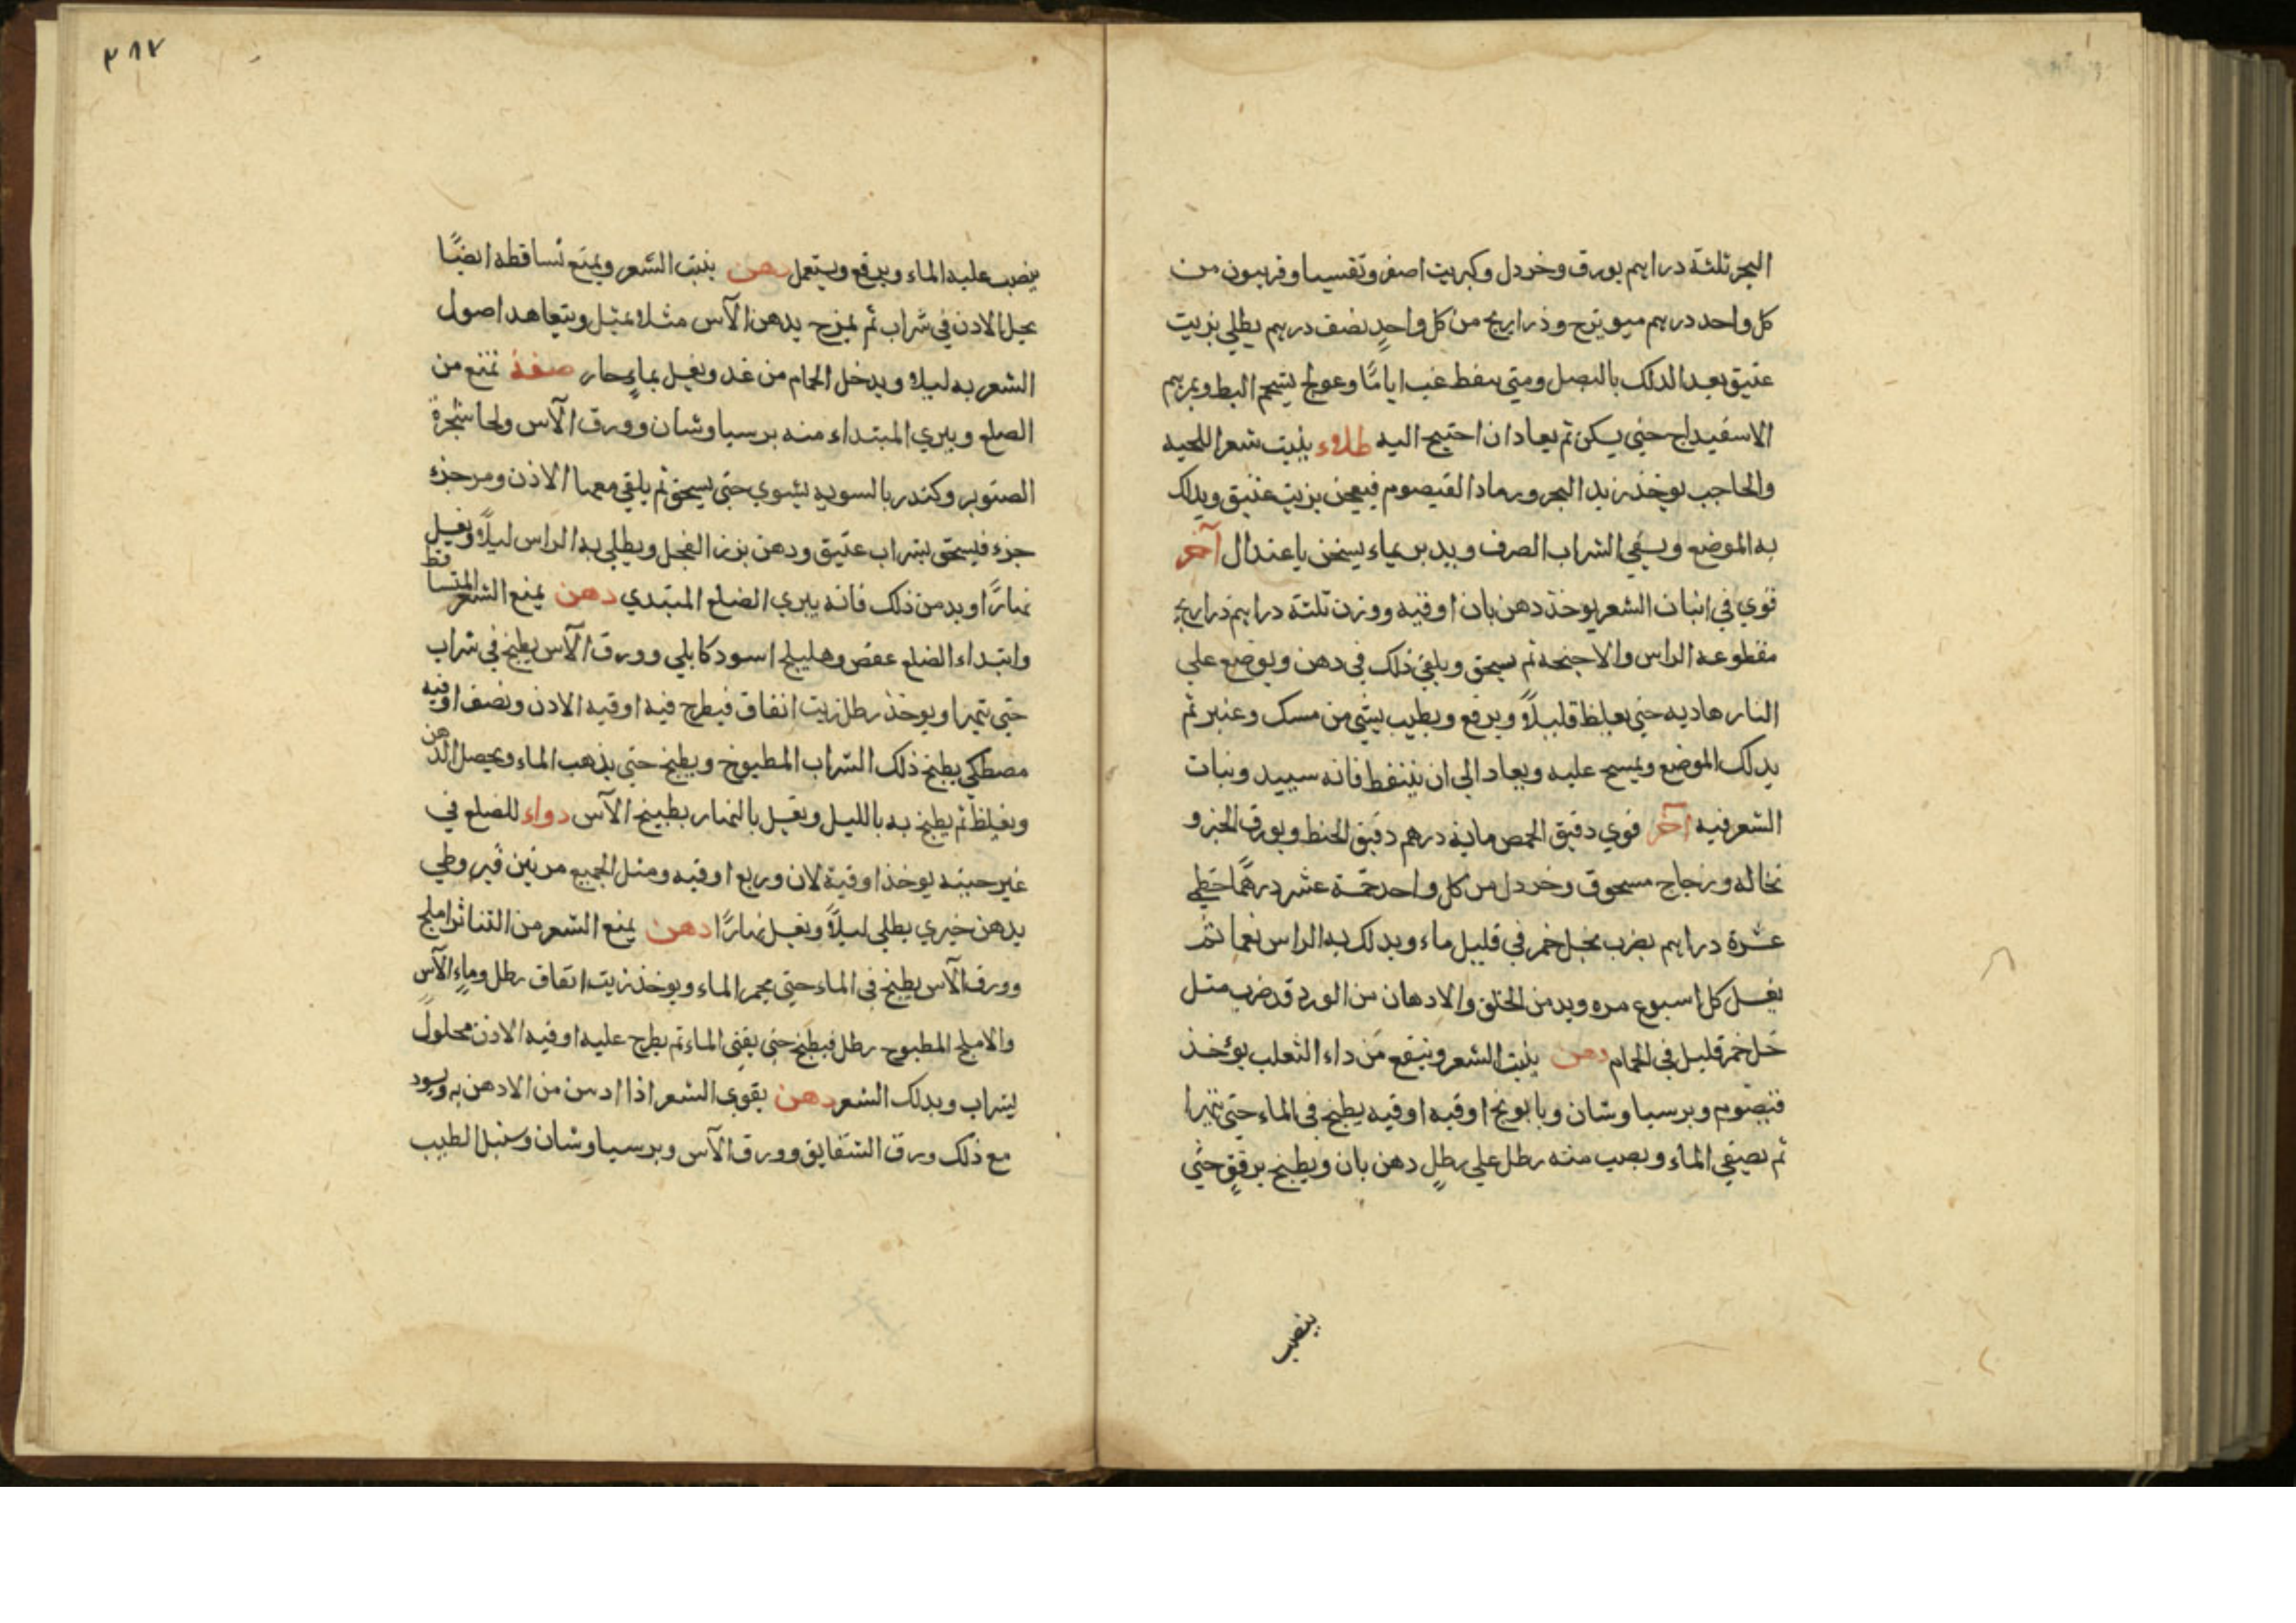 البحر ثلثة دراهم بورق وخردل وكبريت اصفر وتفسيا وفربيون من
كل واحد درهم ميويزج وذراريح من كل واحدٍ نصف درهم يطلي بزيت
عتيق بعد الدلك بالبصل ومتي سفط غب ايامًا وعولج بشحم البط ومرهم
الاسفيداج حتي يسكن ثم يعاد ان احتيج اليه طلاء ينبت شعر اللحيه
والحاجب يوخذ زبد البحر ورماد القيصوم فيعجن بزيت عتيق ويدلك
به الموضع ويسقي الشراب الصرف ويدبر بماء يسخن باعتدال آخر
قوي في انبات الشعر يوخذ دهن بان اوقيه ووزن ثلثة دراهم ذراريح
مقطوعه الراس والاجنحه ثم يسحق ويلقي ذلك في دهن ويوضع علي
النار هاديه حتي يغلظ قليلاً ويرفع ويطيب بشي من مسك وعنبر ثم
يدلك الموضع ويمسح عليه ويعاد الي ان يتنفط فانه سبيد وينبات
الشعر فيه آخر قوي دقيق الحمص ماية درهم دقيق الحنط وبورق الخبز و
نخاله وزجاج مسحوق وخردل من كل واحد خمسة عشر درهمًا خطي
عشرة دراهم يضرب بخل خمر في قليل ماء ويدلك به الراس نعما ثم
يغسل كل اسبوع مره ويدمن الحلق والادهان من الورد قد ضرب مثل
خل خمر قليل في الحمام دهن ينبت الشعر وينفع من داء الثعلب يؤخذ
قيصوم وبرسياوشان وبابونج اوقيه اوقيه يطبخ في الماء حتي يتهرا
ثم يصفي الماء ويصب منه رطل علي رطلٍ دهن بان ويطبخ برفقٍ حتي
ينصب
٣٨٧
ينصب عليه الماء ويرفع ويستعمل دهن ينبت الشعر ويمنع تساقطه ايضًا
يحل الادن في شراب ثم يمزج بدهن الآس مثلا بمثل ويتعاهد اصول
الشعر به ليلا ويدخل الحمام من غد ويغسل بماءٍ حار صفة تمنع من
الصلع ويبري المبتداء منه برسياوشان وورق الآس ولحا شجرة
الصنوبر وكندر بالسويه يشوي حتي يسحق ثم يلقي معها الاذن ومر جزء
جزء فيسحق بشراب عتيق ودهن بزر الفجل ويطلي به الراس ليلًا ويغسل
نهارًا ويدمن ذلك فانه يبري الصلع المبتدي دهن يمنع الشعر المتساقط
وابتداء الصلع عفص وهليلج اسود كابلي وورق الآس يطبخ في شراب
حتي يتهرا ويوخذ رطل زيت انفاق فيطرح فيه اوقيه الادن ونصف اوقيه
مصطكي يطبخ ذلك الشراب المطبوخ ويطبخ حتي يذهب الماء ويحصل الدهن
ويغلظ ثم يطبخ به بالليل ويغسل بالنهار بطبيخ الآس دواء للصلع في
غير حينه يوخذ اوقية لادن وربع اوقيه ومثل الجميع مرتين قيروطي
بدهن خيري يطلي ليلاً ويغسل نهارًا دهن يمنع الشعر من التناثر املج
وورق الآس يطبخ في الماء حتي يحمر الماء ويوخذ زيت انفاق رطل وماء الآس
والاملج المطبوخ رطل فيطبخ حتي يفني الماء ثم يطرح عليه اوقيه الاذن محلول
بشراب ويدلك الشعر دهن يقوي الشعر اذا ادمن من الادهن به ويسود
مع ذلك ورق الشقايق وورق الآس وبرسياوشان وسنبل الطيب